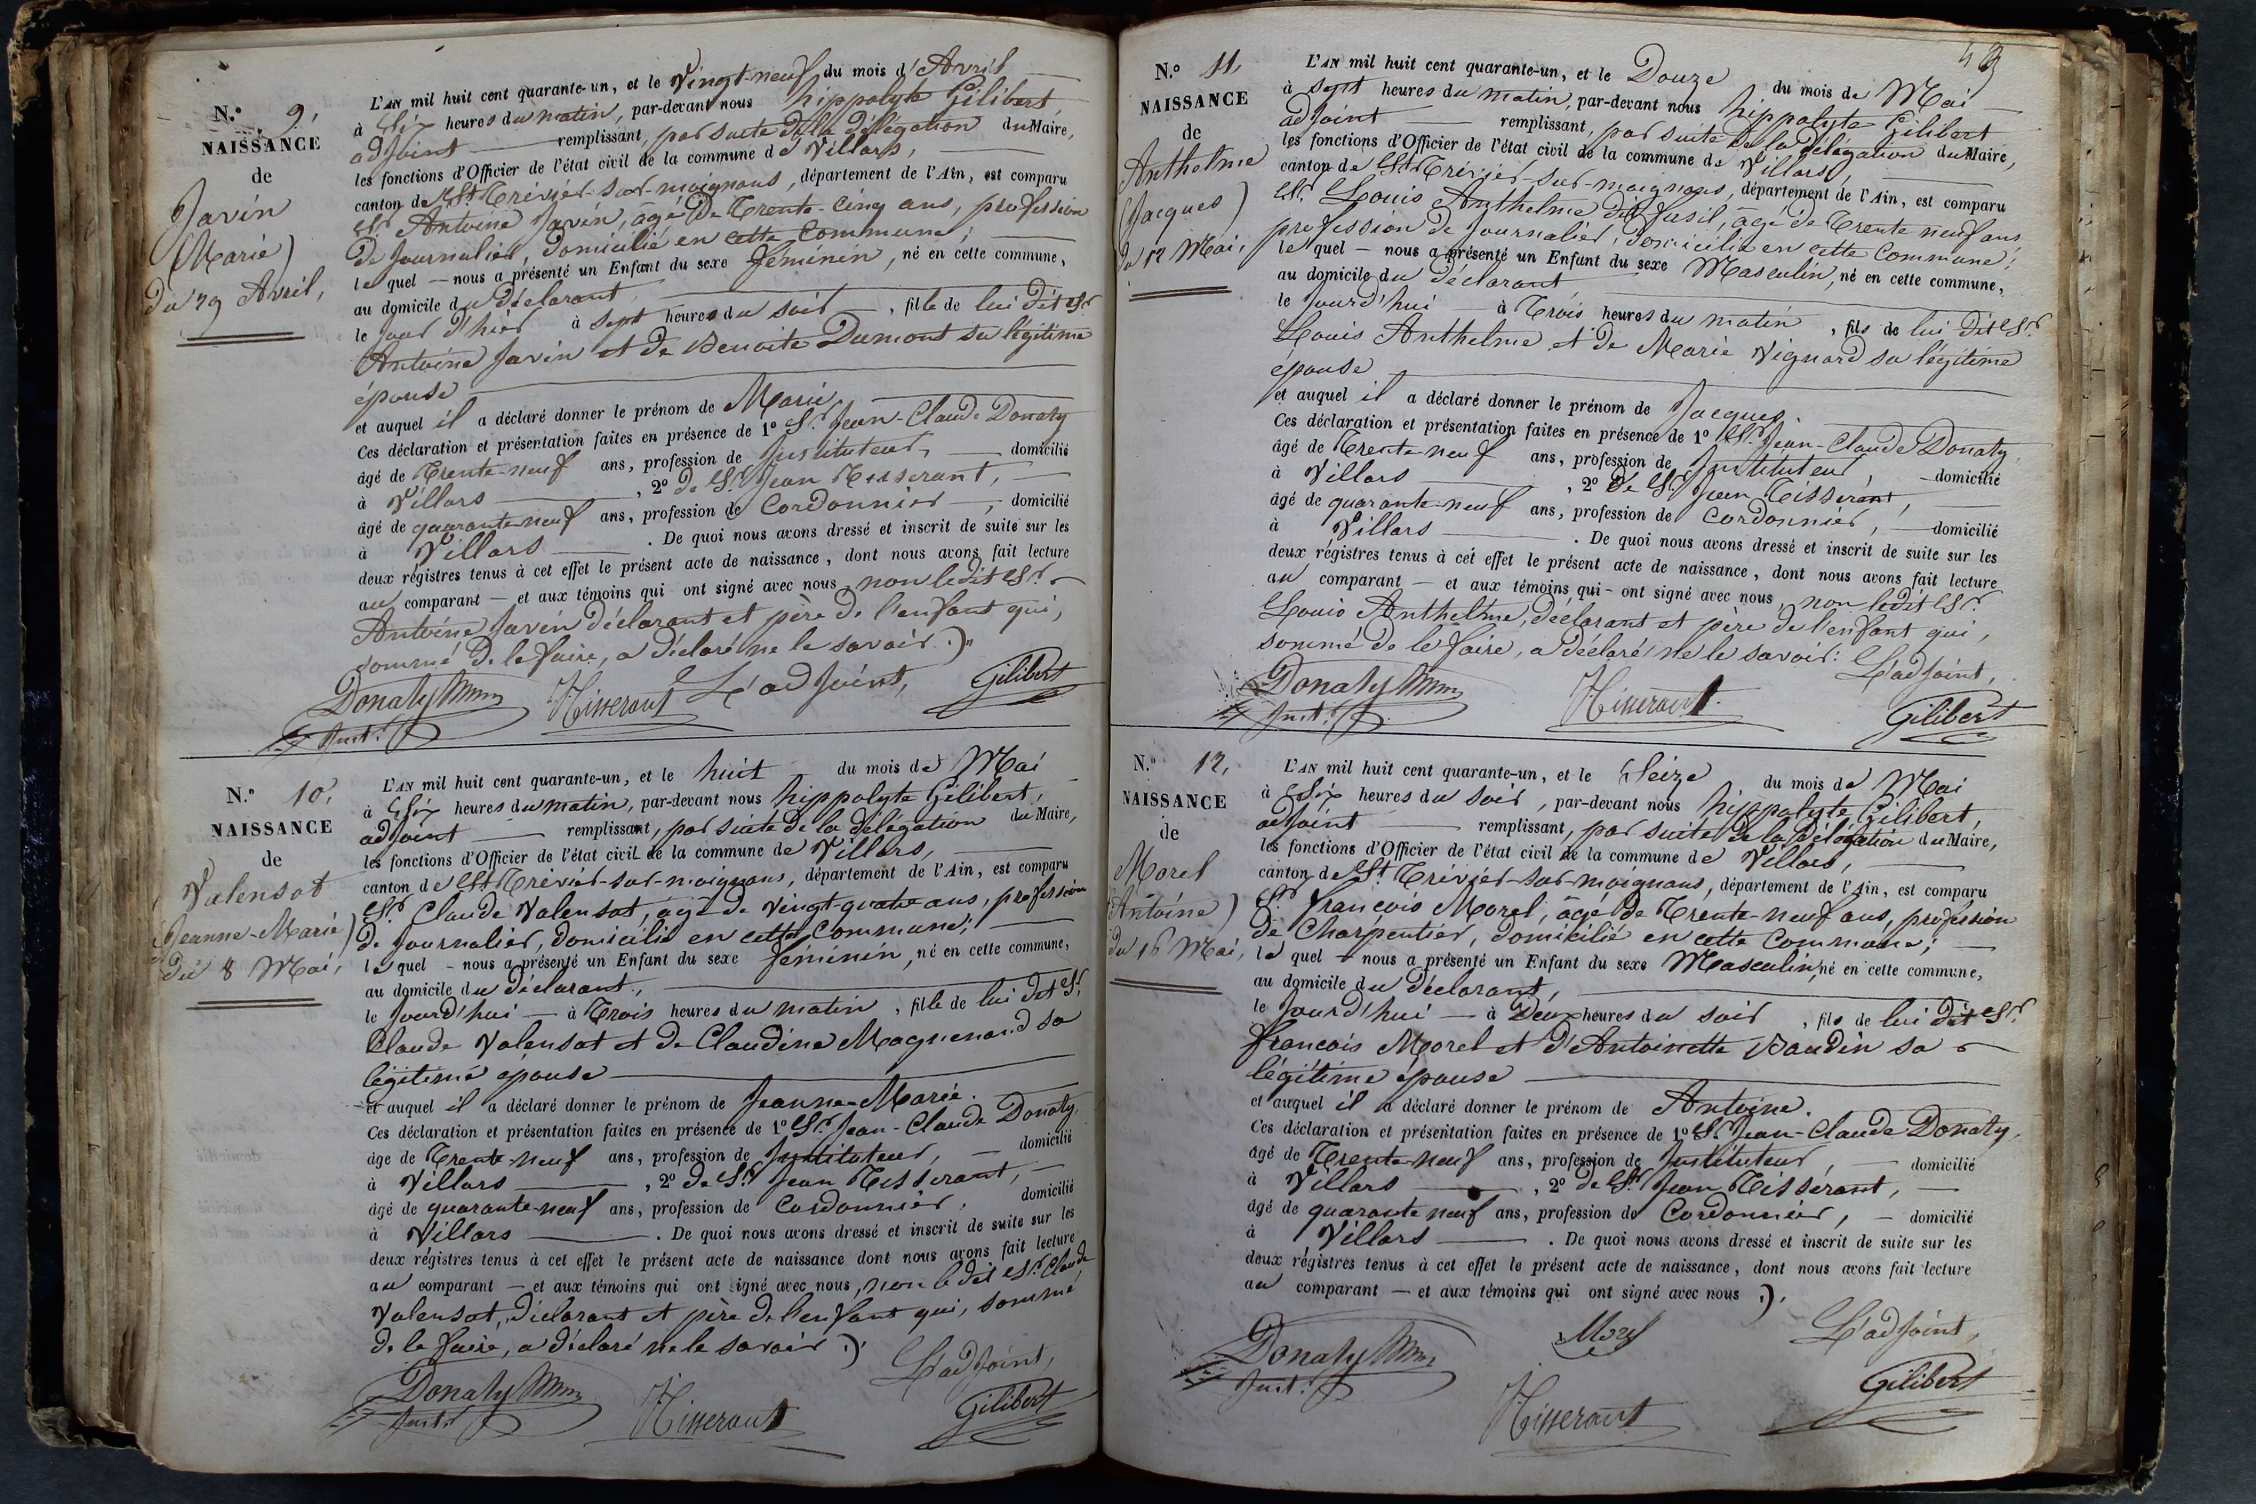 N.° 9,
NAISSANCE
de
Javin
(Marie)
du 29 Avril,
L'AN mil huit cent quarante-un, et le Vingt-neuf du mois d'Avril
à Six heures du matin, par-devant nous hippolyte Gilibert
adjoint remplissant, par suite de la délégation du Maire,
les fonctions d'Officier de l'état civil de la commune de Villars,
canton de St Trivier-sur-moignans, département de l'Ain, est comparu
Sr Antoine Javin, âgé de Trente-cinq ans, profession
de Journalier, domicilié en cette commune;
le quel — nous a présenté un Enfant du sexe féminin, né en cette commune,
au domicile du déclarant,
le jour d'hier à sept heures du soir, fille de lui dit Sr
Antoine Javin et de Benoite Dumont sa légitime
épouse
et auquel il a déclaré donner le prénom de Marie,
Ces déclaration et présentation faites en présence de 1° Sr Jean-Claude Donaty
âgé de Trente-neuf ans, profession de Instituteur, domicilié
à Villars, 2° de Sr Jean Tisserant,
âgé de quarante-neuf ans, profession de Cordonnier, domicilié
à Villars. De quoi nous avons dressé et inscrit de suite sur les
deux régistres tenus à cet effet le présent acte de naissance, dont nous avons fait lecture
au comparant — et aux témoins qui ont signé avec nous, non ledit Sr
Antoine Javin déclarant et père de l'enfant qui,
sommé de le faire, a déclaré ne le savoir.
Donaty
Inst.
Tisserant
L'adjoint,
Gilibert
N.° 10,
NAISSANCE
de
Valensot
(Jeanne-Marie)
du 8 Mai,
L'AN mil huit cent quarante-un, et le huit du mois de Mai
à Six heures du matin, par-devant nous hippolyte Gilibert,
adjoint remplissant, par suite de la délégation du Maire,
les fonctions d'Officier de l'état civil de la commune de Villars,
canton de St Trivier-sur-moignans, département de l'Ain, est comparu
Sr Claude Valensot, âgé de vingt-quatre ans, profession
de Journalier, domicilié en cette commune;
le quel — nous a présenté un Enfant du sexe féminin, né en cette commune,
au domicile du déclarant,
le jourd'hui — à Trois heures du matin, fille de lui dit Sr
Claude Valensot et de Claudine Magnenand sa
légitime épouse
et auquel il a déclaré donner le prénom de Jeanne-Marie.
Ces déclaration et présentation faites en présence de 1° Sr Jean-Claude Donaty,
âgé de Trente-neuf ans, profession de Instituteur, domicilié
à Villars, 2° de Sr Jean Tisserant,
âgé de quarante-neuf ans, profession de Cordonnier, domicilié
à Villars. De quoi nous avons dressé et inscrit de suite sur les
deux régistres tenus à cet effet le présent acte de naissance dont nous avons fait lecture
au comparant — et aux témoins qui ont signé avec nous, non ledit Sr Claude
Valensot, déclarant et père de l'enfant qui, sommé
de le faire, a déclaré ne le savoir.
L'adjoint,
Donaty
Inst.
Tisserant
Gilibert
43
N.° 11,
NAISSANCE
de
Anthelme
(Jacques)
du 12 Mai,
L'AN mil huit cent quarante-un, et le Douze du mois de Mai
à sept heures du matin, par-devant nous hippolyte Gilibert
adjoint remplissant, par suite de la délégation du Maire,
les fonctions d'Officier de l'état civil de la commune de Villars,
canton de St Trivier-sur-moignans, département de l'Ain, est comparu
Sr Louis Anthelme dit fusil, âgé de Trente neuf ans
profession de Journalier, domicilié en cette commune;
le quel — nous a présenté un Enfant du sexe Masculin, né en cette commune,
au domicile du déclarant
le jourd'hui — à Trois heures du matin, fils de lui dit Sr
Louis Anthelme et de Marie Vignard sa légitime
épouse
et auquel il a déclaré donner le prénom de Jacques.
Ces déclaration et présentation faites en présence de 1° Sr Jean-Claude Donaty
âgé de Trente-neuf ans, profession de Instituteur domicilié
à Villars, 2° de Sr Jean Tisserant,
âgé de quarante-neuf ans, profession de Cordonnier, domicilié
à Villars. De quoi nous avons dressé et inscrit de suite sur les
deux régistres tenus à cet effet le présent acte de naissance, dont nous avons fait lecture
au comparant — et aux témoins qui ont signé avec nous, non ledit Sr
Louis Anthelme, déclarant et père de l'enfant qui,
sommé de le faire, a déclaré ne le savoir.
L'adjoint,
Donaty
Inst.
Tisserant
Gilibert
N.° 12,
NAISSANCE
de
Morel
(Antoine)
du 16 Mai,
L'AN mil huit cent quarante-un, et le Seize du mois de Mai
à Six heures du soir, par-devant nous hippolyte Gilibert,
adjoint remplissant, par suite de la délégation du Maire,
les fonctions d'Officier de l'état civil de la commune de Villars,
canton de St Trivier-sur-moignans, département de l'Ain, est comparu
Sr françois Morel, âgé de Trente-neuf ans, profession
de Charpentier, domicilié en cette commune;
le quel — nous a présenté un Enfant du sexe Masculin, né en cette commune,
au domicile du déclarant,
le jourd'hui — à Deux heures du soir, fils de lui dit Sr
françois Morel et d'Antoinette Baudin sa
légitime épouse
et auquel il a déclaré donner le prénom de Antoine.
Ces déclaration et présentation faites en présence de 1° Sr Jean-Claude Donaty,
âgé de Trente-neuf ans, profession de Instituteur, domicilié
à Villars, 2° de Sr Jean Tisserant,
âgé de quarante neuf ans, profession de Cordonnier, — domicilié
à Villars. De quoi nous avons dressé et inscrit de suite sur les
deux régistres tenus à cet effet le présent acte de naissance, dont nous avons fait lecture
au comparant — et aux témoins qui ont signé avec nous.
Morel
L'adjoint,
Donaty
Inst.
Tisserant
Gilibert